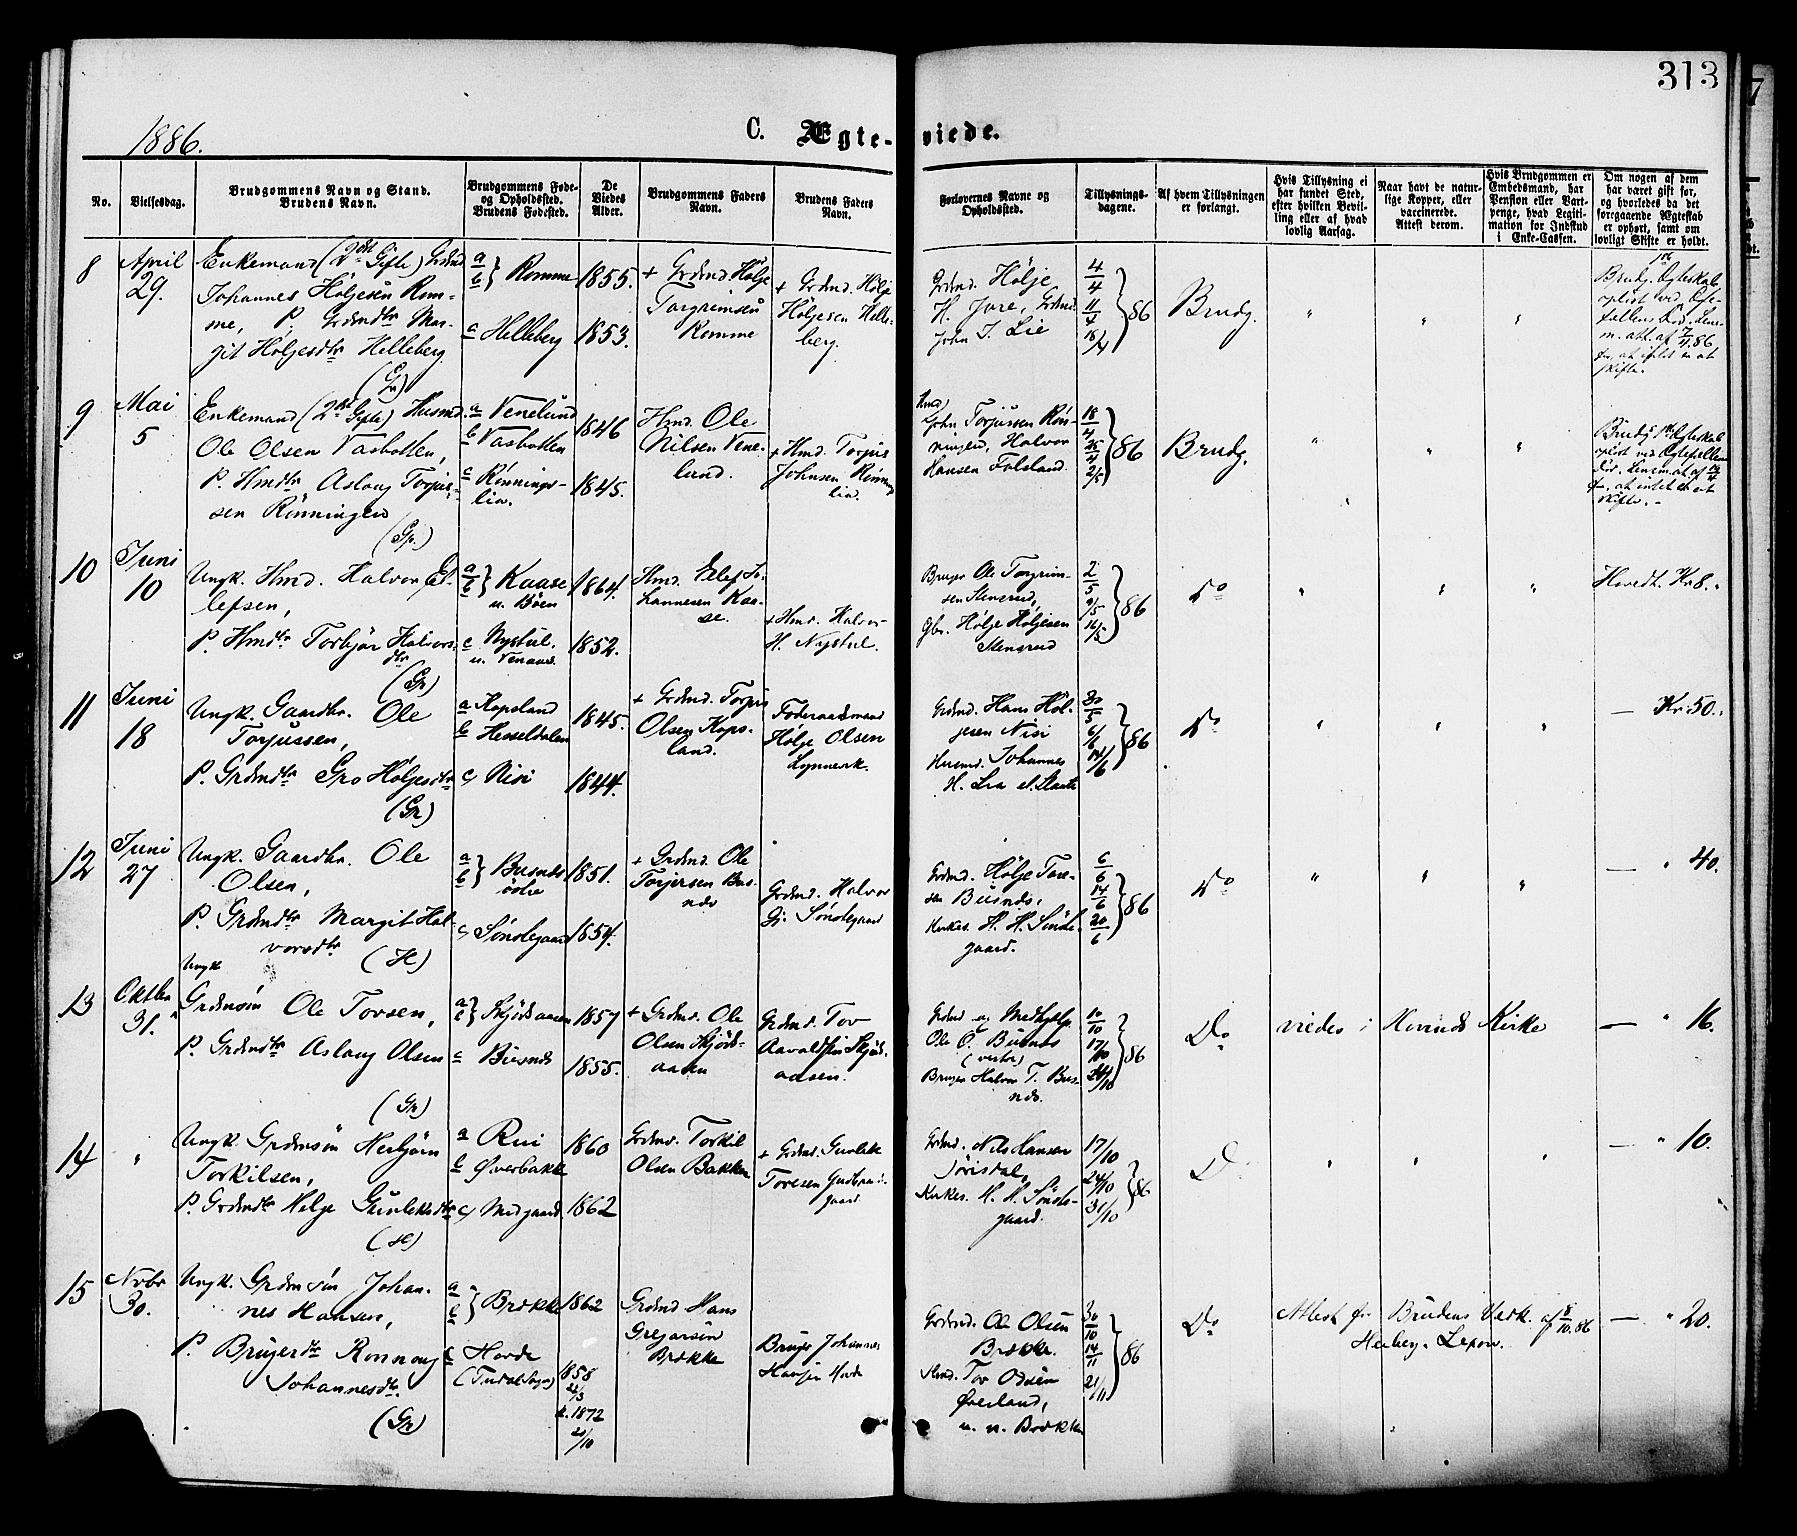 313
1886.
C. Ægte-viede.
No.
Vielsesdag.
Brudgommens Navn og Stand.
Brudens Navn.
Brudgommens Føde-
og Opholdssted.
Brudens Fødested.
De
Viedes
Alder.
Brudgommens Faders
Navn.
Brudens Faders
Navn.
Forlovernes Navne og
Opholdssted.
Tillysnings-
dagene.
Af hvem Tillysningen
er forlangt.
Hvis Tillysning ei
har fundet Sted,
efter hvilken Bevil-
ling eller af hvad
lovlig Aarsag.
Naar havt de natur-
lige Kopper, eller
vaccinerede.
Attest derom.
Hvis Brudgommen er
Embedsmand, har
Pension eller Vart-
penge, hvad Legiti-
mation for Indskud
i Enke-Cassen.
Om nogen af dem
har været gift før,
og hvorledes da det
foregaaende Ægteskab
er ophørt, samt om
lovligt Skifte er holdt.
8
April
29.
Enkemand (2den Gifte) Grdmd
Johannes Höljesen Rom-
me, P. Grdmdtr Mar-
git Höljesdtr Helleberg.
(Gr)
a
b } Romme
c Helleberg
1855.
1853.
+ Grdmd Hölje
Torgrimsen
Romme
+ Grdmd. Hölje
Höljesen Helle-
berg.
Grdmd. Hölje
H. Jore, Grdmd.
John T. Lie
4/4
11/4
18/4
} 86
Brudg.
"
"
"
Brudg. Ægteskab
opløst ved Ægte-
fellens Død. Lens-
m. att. af 7/4.86
for, at intet er at
skifte.
9
Mai
5
Enkemand (2den Gifte) Husmd.
Ole Olsen Vasbotten,
P. Hmdtr Aslaug Torjus-
sen Rønningen
(Gr.)
a Venelund
b Vasbotten
c Rønnings-
lia.
1846
1845.
Hmd. Ole
Nilsen Vene-
lund.
+ Hmd. Torjus
Johnsen Rønnings
lia.
Hmd.
John Torjussen Røn-
ningen, Halvor
Hansen Folsland.
18/4
25/4
2/5
} 86
Brudg.
"
"
"
Brudg. 1ste Ægteskab
opløst ved Ægtefellens
Død. Lensm. at. af
for, at intet er at
skifte. -
10
Juni
10
Ungk. Hmd. Halvor El-
lefsen,
P. Hmdtr Torbjör Halvors-
dtr
(Gr)
a
b } Kaase
u. Bøen
c Nystul.
u. Venaas.
1864.
1852.
Hmd. Ellef Jo-
hannesen Kaa-
se.
+ Hmd. Halvor
H. Nystul.
Bruger Ole Torgrim-
sen Stensrud,
Gbr. Hölje Höljesen
Stensrud
2/5
9/5
16/5
} 86
Do
"
"
"
Hovedt. Kr 8. "
11
Juni
18
Ungk. Gaardbr. Ole
Torjussen,
P. Grdmdtr Gro Höljesdtr
(Gr)
a Kopsland
b Hesseldalen
c Nisi
1845.
1844.
+ Grdmd. Torjus
Olsen Kops-
land.
Føderaadsmand
Hölje Olsen
Grdmd. Hans Höl-
jesen Nisi
Husmd. Johannes
H. Lia
30/5
6/6
14/6
} 86
Do
"
"
"
— Kr 50. "
12
Juni
27
Ungk. Gaardbr. Ole
Olsen,
P. Grdmdtr Margit Hal-
vorsdtr
(H)
a
b } Busnes
østre
c Søndegaard
1851.
1854.
+ Grdmd. Ole
Torjersen Bus-
nes
Grdmd. Halvor
G. Søndegaard
Grdmd. Hölje Tore-
sen Busnes,
Kirkes. H. H. Sønde-
gaard.
6/6
14/6
20/6
} 86
Do
"
"
"
— " 40.
13
Oktbr
31.
Ungk
Grdmsön Ole Torsen,
P. Grdmdtr Aslaug Olsen
(Gr)
a
b } Skjøsaasen
c Busnes
1857
1855.
+ Grdmd. Ole
Olsen Skjøs-
aasen
Grdmd. Tov
Aavaldsen Skjøs-
aasen.
Grdmd og Medhjelp.
Ole O. Busnes
(vestre)
Bruger Halvor T. Bus-
nes.
10/10
17/10
24/10
} 86
Do
viedes i Hovinds Kirke
— " 16.
14
"
Ungk. Grdmsön Herbjörn
Torkilsen,
P. Grdmdtr Helge Gunleksdtr
(H)
a Rui
b Øverbakke
c Midgaard.
1860
1862
Grdmd. Torkil
Olsen Bakken
+ Grdmd. Gunlek
Toresen
gaard
Grdmd. Nils Hansen
Jörisdal,
Kirkes. H. H. Sønde-
gaard.
17/10
24/10
31/10
} 86
Do
"
"
"
— " 10.
15
Novbr
30.
Ungk. Grdmsön Johan-
nes Hansen,
P. Brugerdtr Rønnoug
Johannesdtr.
(Gr)
a
b } Brække
c Hovde
(Tudal Sogn)
1862
1858
21/3
k. 1872
20/10
Grdmd Hans
Gregarsön
Brække
Bruger Johannes
Hansen Hovde
Grdmd. Ole Olsen
Brække.
Hmd. Tov Odsen
Øverland,
u. n. Brække
30/10
14/11
21/11
} 86
Do
Attest for Brudens Vedk. af 8/10.86
— " 20.